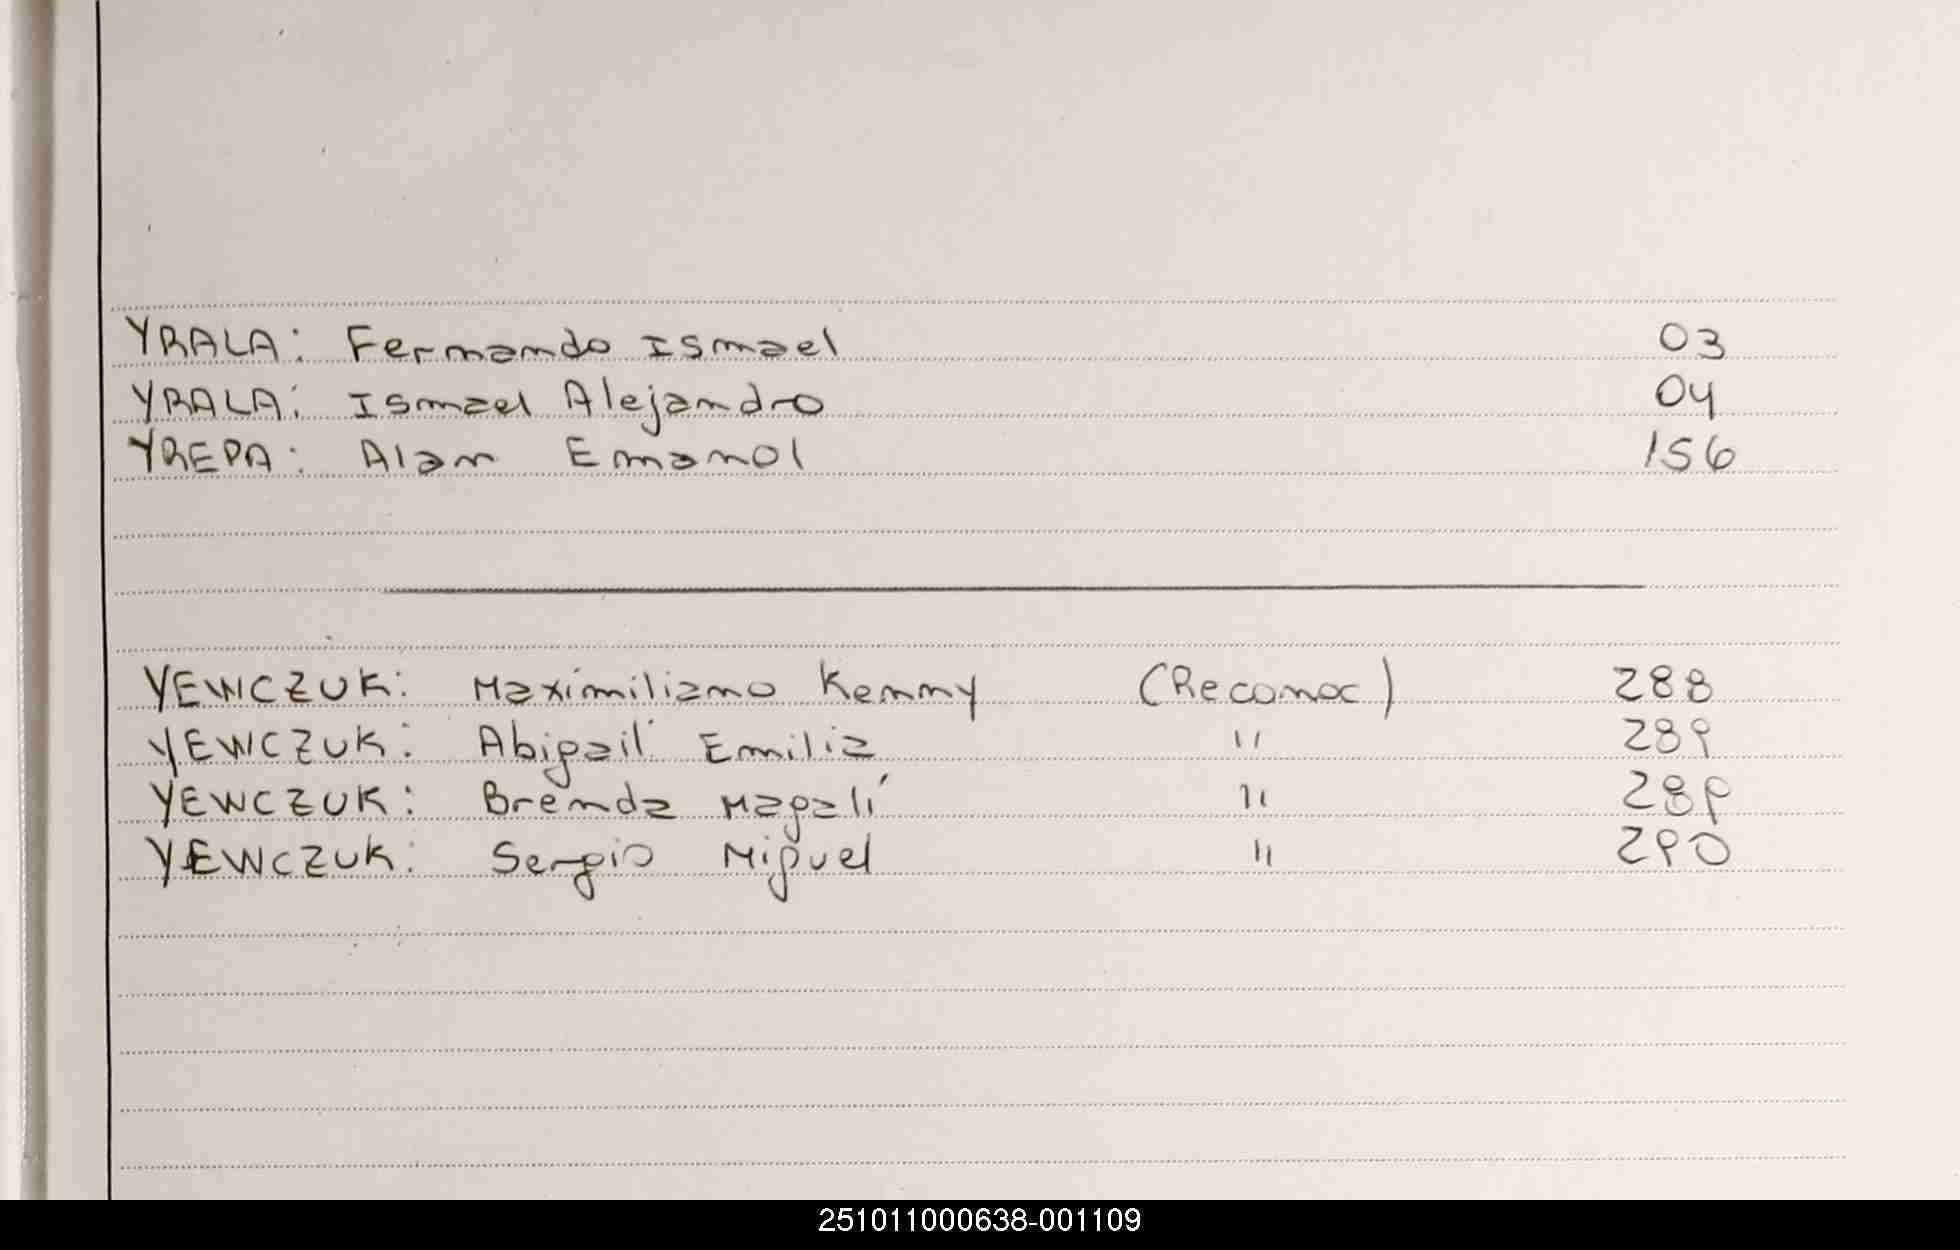 YRALA: Fernando Ismael 03
YRALA: Ismael Alejandro 04
YREPA: Alan Emanol 156
YEWCZUK: Maximiliano Kenny (Reconoc) 288
YEWCZUK: Abigail Emilia " 289
YEWCZUK: Brenda Magalí " 289
YEWCZUK: Sergio Miguel " 290
251011000638-001109